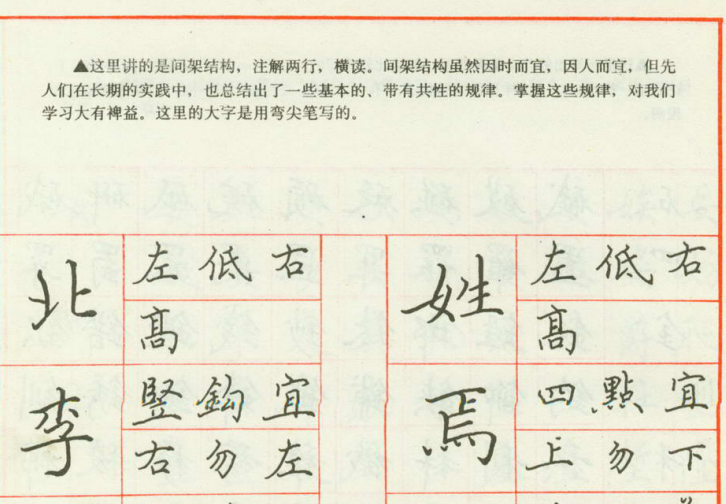 ▲这里讲的是间架结构，注解两行，横读。间架结构虽然因时而宜，因人而宜，但先
人们在长期的实践中，也总结出了一些基本的、带有共性的规律。掌握这些规律，对我们
学习大有裨益。这里的大字是用弯尖笔写的。
北
左低右
髙
姓
左低右
髙
李
竪鉤宜
右勿左
焉
四點宜
上勿下